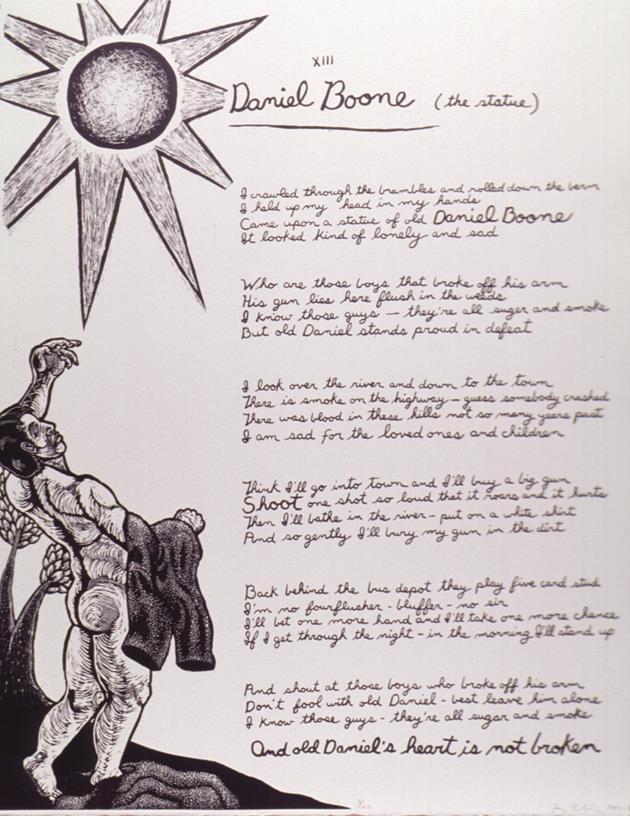 XIII
Daniel Boone (the statue)
I crawled through the brambles and rolled down the berm
I held up my head in my hands
Came upon a statue of old Daniel Boone
It looked kind of lonely and sad
Who are those boys that broke off his arm
His gun lies here flush in the weeds
I know those guys — they're all sugar and smoke
But old Daniel stands proud in defeat
I look over the river and down to the town
There is smoke on the highway — guess somebody crashed
There was blood in these hills not so many years past
I am sad for the loved ones and children
Think I'll go into town and I'll buy a big gun
Shoot one shot so loud that it roars and it hurts
Then I'll bathe in the river - put on a white shirt
And so gently I'll bury my gun in the dirt
Back behind the bus depot they play five card stud
I'm no fourflusher - bluffer - no sir
I'll bet one more hand and I'll take one more chance
If I get through the night - in the morning I'll stand up
And shout at those boys who broke off his arm
Don't fool with old Daniel - best leave him alone
I know those guys - they're all sugar and smoke
And old Daniel's heart is not broken